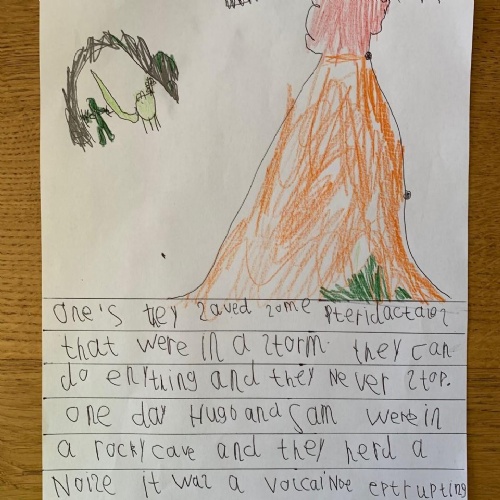 one's they saved some Pteridactaios
that were in a storm. they can
do enything and they Never stop.
one day Hugo and Sam were in
a rocky cave and they herd a
Noize it was a volcainoe ertrupting